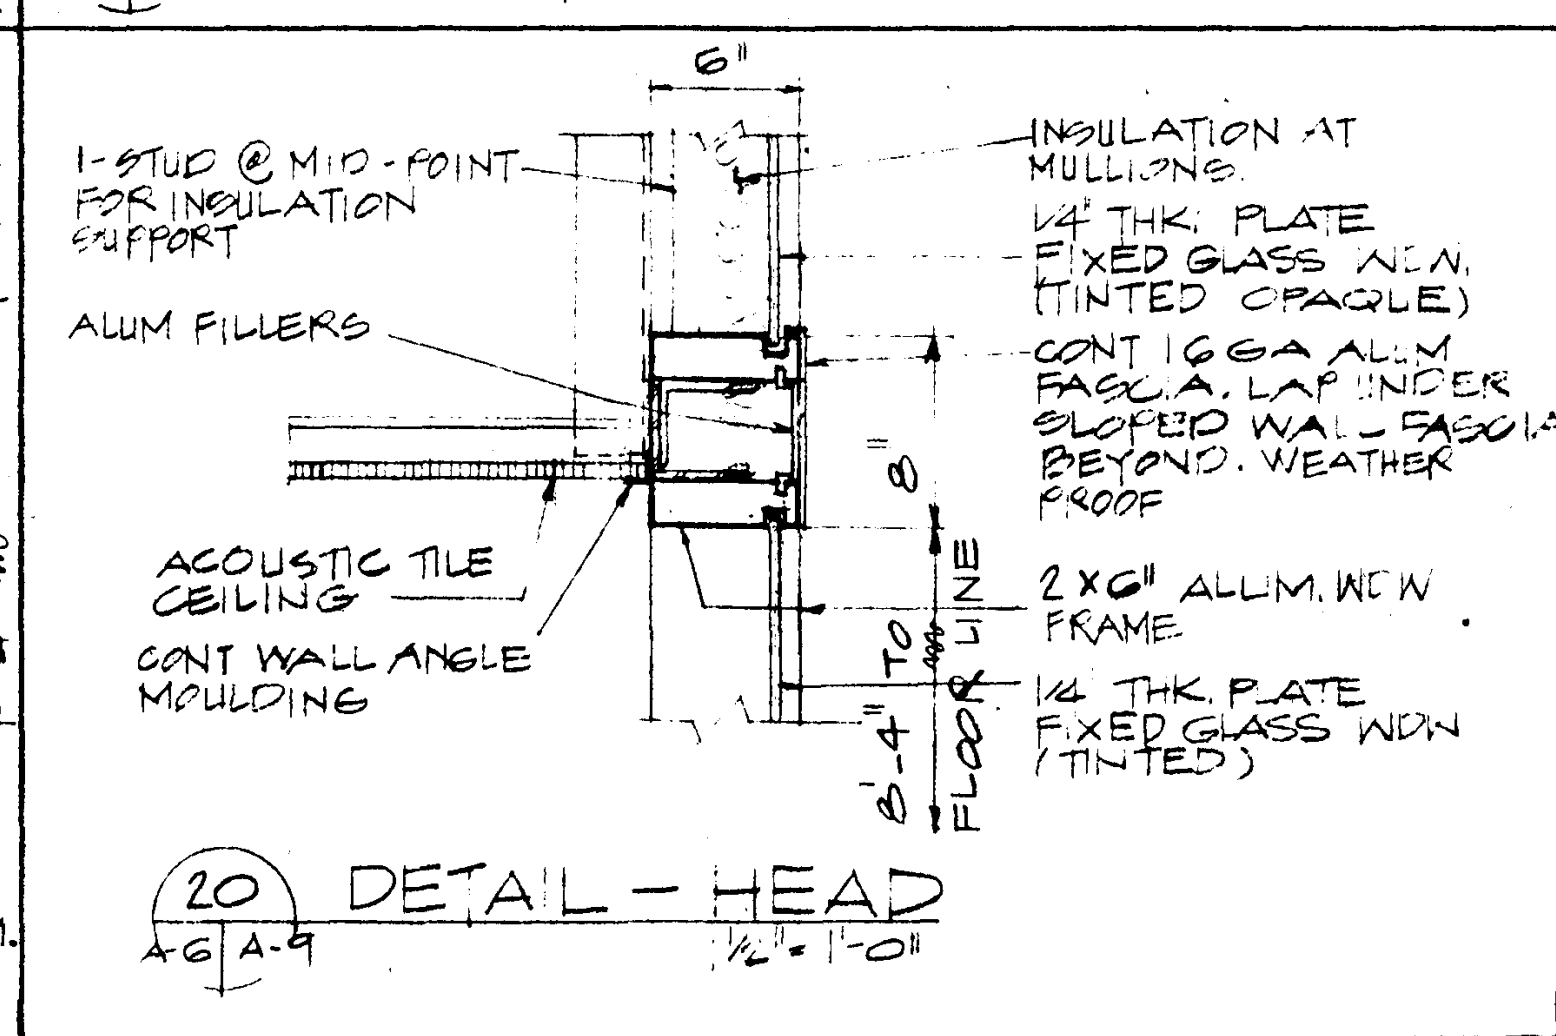 6"
1-STUD @ MID-POINT
FOR INSULATION
SUPPORT
ALUM FILLERS
ACOUSTIC TILE
CEILING
CONT WALL ANGLE
MOULDING
INSULATION AT
MULLIONS.
1/4" THK. PLATE
FIXED GLASS WDW.
(TINTED OPAQUE)
CONT 16 GA ALUM
FASCIA. LAP UNDER
SLOPED WALL FASCIA
BEYOND. WEATHER
PROOF
2 X 6" ALUM. WDW
FRAME
1/4 THK. PLATE
FIXED GLASS WDW
(TINTED)
8"
8'-4" TO
FLOOR LINE
20 DETAIL - HEAD
A-6 A-9
1/2" = 1'-0"